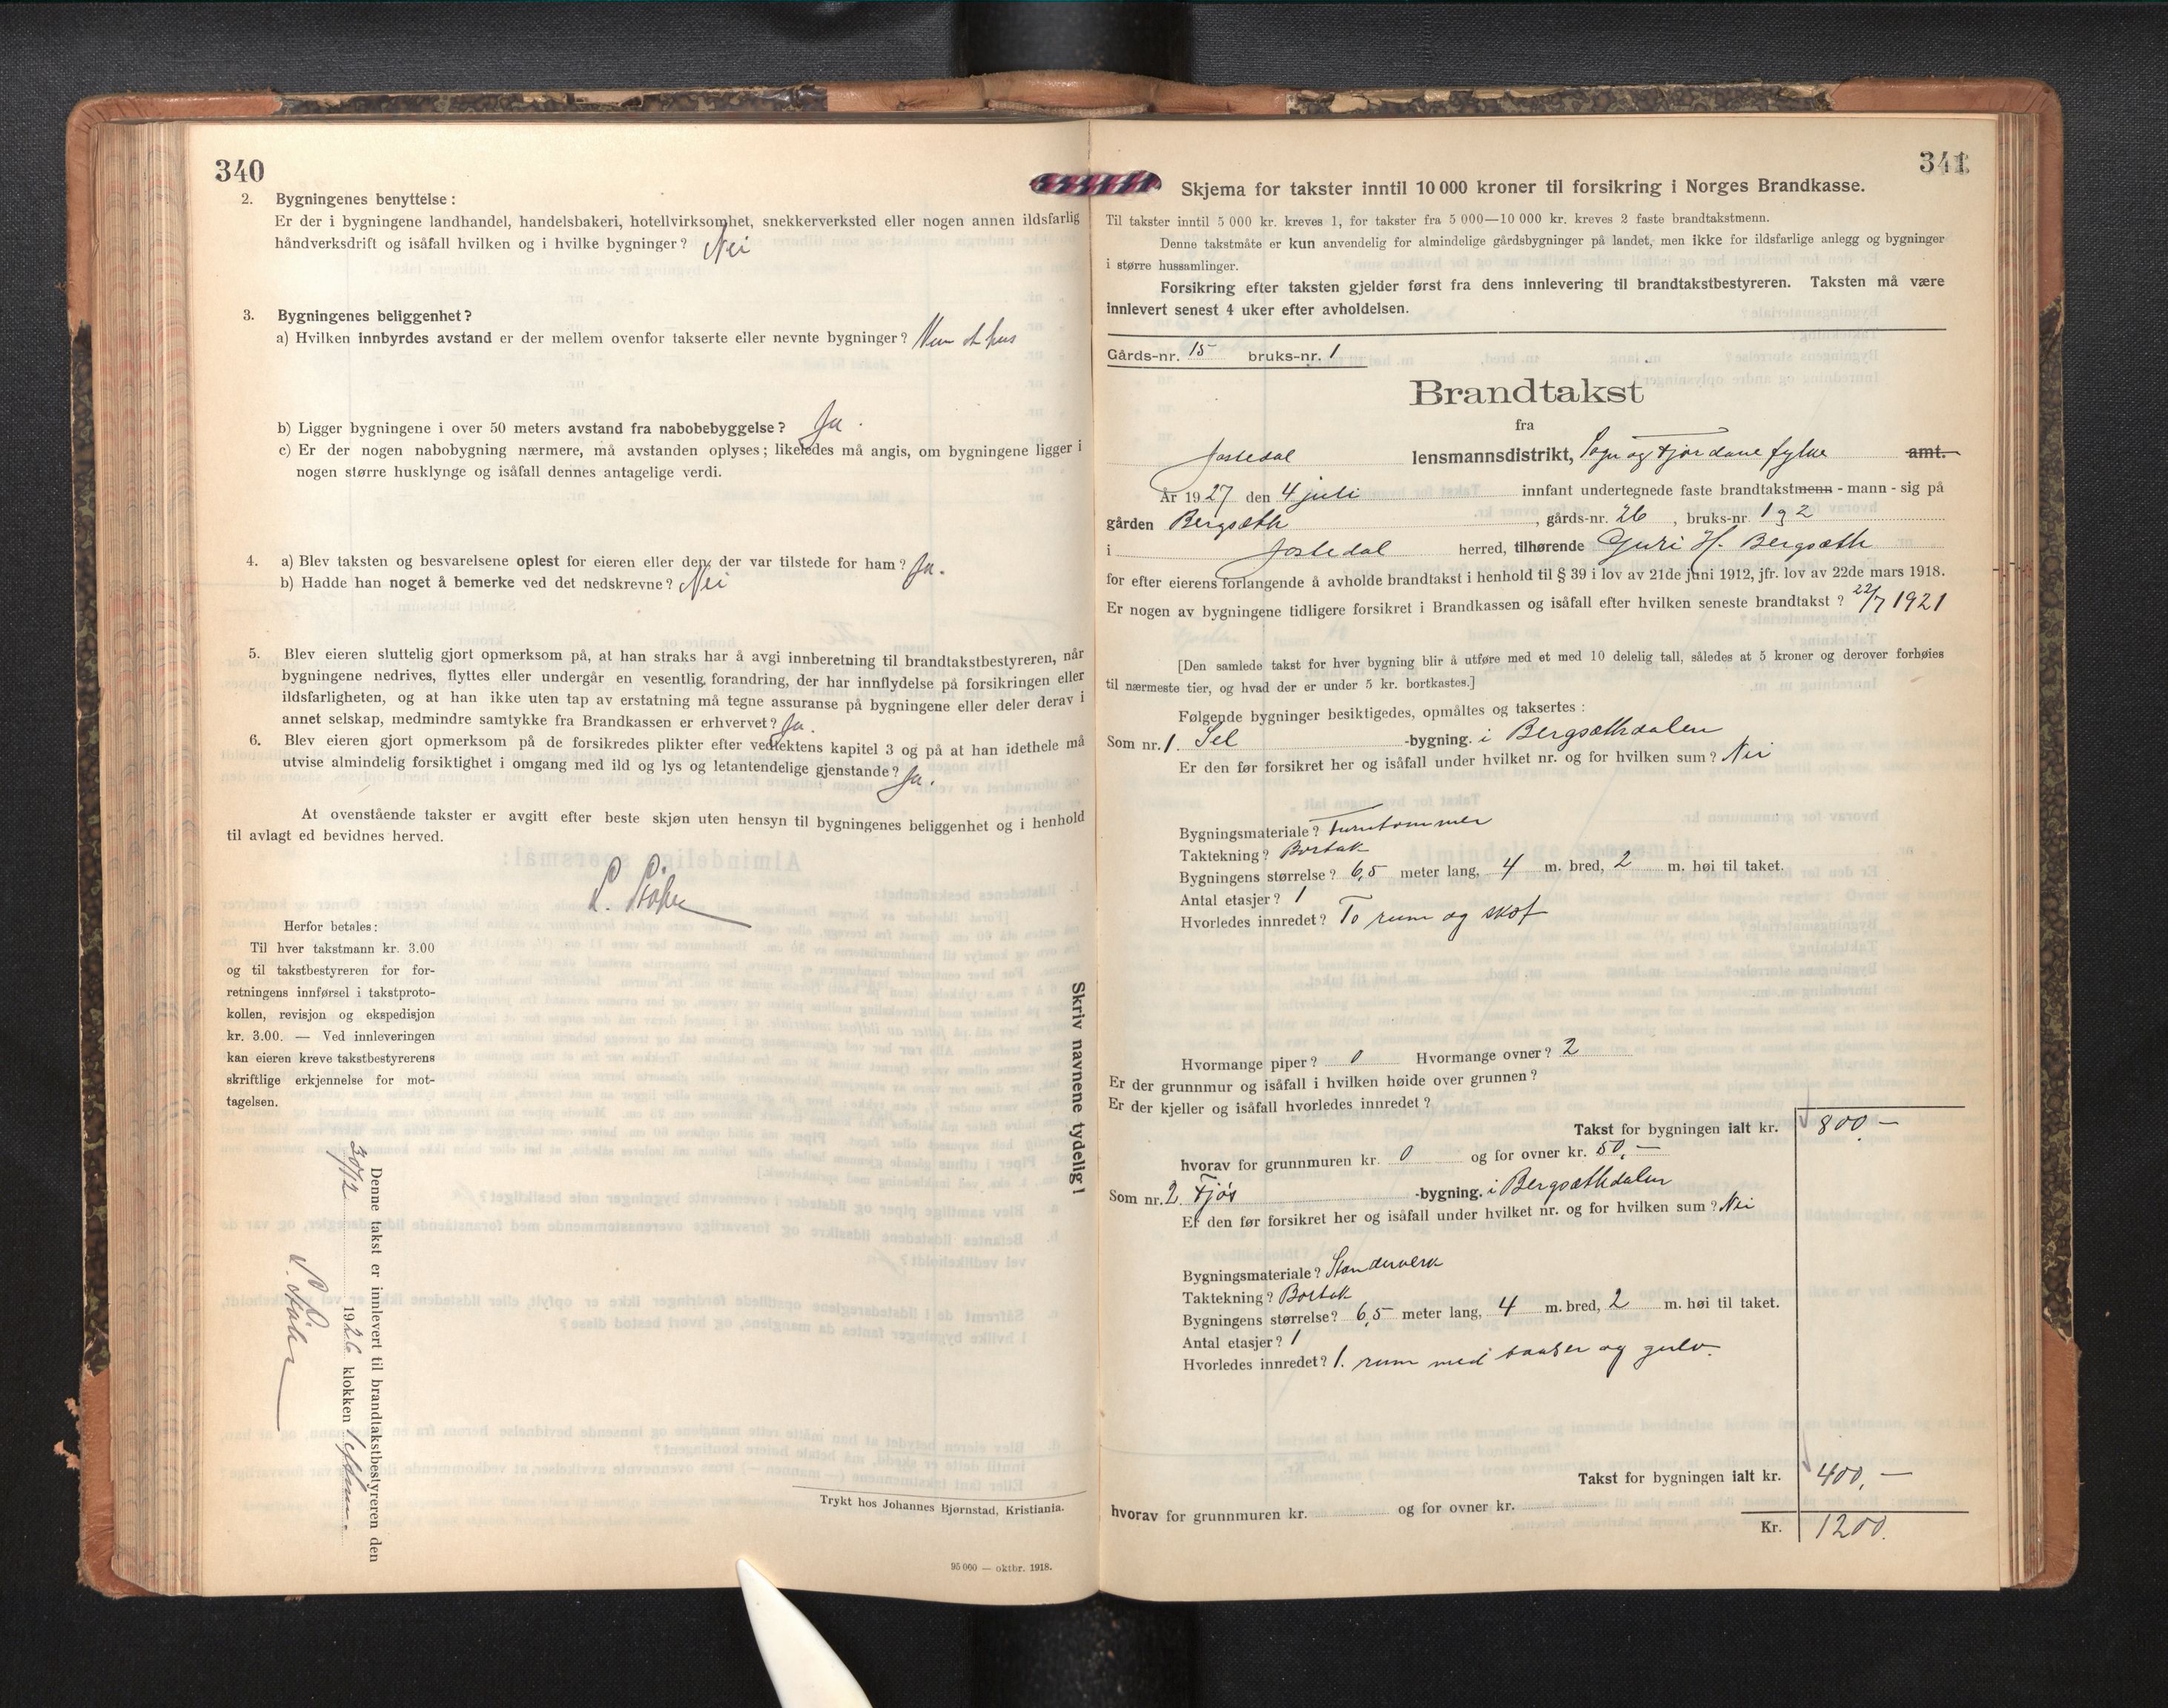 340
2. Bygningenes benyttelse:
Er der i bygningene landhandel, handelsbakeri, hotellvirksomhet, snekkerverksted eller nogen annen ildsfarlig
håndverksdrift og isåfall hvilken og i hvilke bygninger? Nei
3. Bygningenes beliggenhet?
a) Hvilken innbyrdes avstand er der mellem ovenfor takserte eller nevnte bygninger? Kun et hus
b) Ligger bygningene i over 50 meters avstand fra nabobebyggelse? Ja.
c) Er der nogen nabobygning nærmere, må avstanden oplyses; likeledes må angis, om bygningene ligger i
nogen større husklynge og isåfall dennes antagelige verdi.
4. a) Blev taksten og besvarelsene oplest for eieren eller den, der var tilstede for ham? Ja.
b) Hadde han noget å bemerke ved det nedskrevne? Nei
5. Blev eieren sluttelig gjort opmerksom på, at han straks har å avgi innberetning til brandtakstbestyreren, når
bygningene nedrives, flyttes eller undergår en vesentlig forandring, der har innflydelse på forsikringen eller
ildsfarligheten, og at han ikke uten tap av erstatning må tegne assuranse på bygningene eller deler derav i
annet selskap, medmindre samtykke fra Brandkassen er erhvervet? Ja.
6. Blev eieren gjort opmerksom på de forsikredes plikter efter vedtektens kapitel 3 og på at han idethele må
utvise almindelig forsiktighet i omgang med ild og lys og letantendelige gjenstande? Ja.
At ovenstående takster er avgitt efter beste skjøn uten hensyn til bygningenes beliggenhet og i henhold
til avlagt ed bevidnes herved.
Herfor betales:
Til hver takstmann kr. 3.00
og til takstbestyreren for for-
retningens innførsel i takstproto-
kollen, revisjon og ekspedisjon
kr. 3.00. — Ved innleveringen
kan eieren kreve takstbestyrerens
skriftlige erkjennelse for mot-
tagelsen.
Skriv navnene tydelig!
Denne takst er innlevert til brandtakstbestyreren den
30/12 1926 klokken
Trykt hos Johannes Bjørnstad, Kristiania.
95 000 — oktbr. 1918.
341
Skjema for takster inntil 10 000 kroner til forsikring i Norges Brandkasse.
Til takster inntil 5 000 kr. kreves 1, for takster fra 5 000—10 000 kr. kreves 2 faste brandtakstmenn.
Denne takstmåte er kun anvendelig for almindelige gårdsbygninger på landet, men ikke for ildsfarlige anlegg og bygninger
i større hussamlinger.
Forsikring efter taksten gjelder først fra dens innlevering til brandtakstbestyreren. Taksten må være
innlevert senest 4 uker efter avholdelsen.
Gårds-nr. 15 bruks-nr. 1
Brandtakst
fra
Jostedal lensmannsdistrikt, Sogn og Fjordane fylke amt.
År 1927 den 4 juli innfant undertegnede faste brandtakstmenn - mann - sig på
gården Bergsæth, gårds-nr. 26, bruks-nr. 1 og 2
i Jostedal herred, tilhørende Guri H. Bergsæth
for efter eierens forlangende å avholde brandtakst i henhold til § 39 i lov av 21de juni 1912, jfr. lov av 22de mars 1918.
Er nogen av bygningene tidligere forsikret i Brandkassen og isåfall efter hvilken seneste brandtakst? 22/7 1921
[Den samlede takst for hver bygning blir å utføre med et med 10 delelig tall, således at 5 kroner og derover forhøies
til nærmeste tier, og hvad der er under 5 kr. bortkastes.]
Følgende bygninger besiktigedes, opmåltes og taksertes:
Som nr. 1. Sel -bygning. i Bergsæthdalen
Er den før forsikret her og isåfall under hvilket nr. og for hvilken sum? Nei
Bygningsmateriale? Furutømmer
Taktekning? Bortak
Bygningens størrelse? 6,5 meter lang, 4 m. bred, 2 m. høi til taket.
Antal etasjer? 1
Hvorledes innredet? To rum og skot
Hvormange piper? 0 Hvormange ovner? 2
Er der grunnmur og isåfall i hvilken høide over grunnen?
Er der kjeller og isåfall hvorledes innredet?
Takst for bygningen ialt kr. 800 —
hvorav for grunnmuren kr. 0 og for ovner kr. 50, —
Som nr. 2. Fjøs -bygning. i Bergsæthdalen
Er den før forsikret her og isåfall under hvilket nr. og for hvilken sum? Nei
Bygningsmateriale? Standerverk
Taktekning? Bortak
Bygningens størrelse? 6,5 meter lang, 4 m. bred, 2 m. høi til taket.
Antal etasjer? 1
Hvorledes innredet? 1. rum med baaser og gulv.
Takst for bygningen ialt kr. 400, —
hvorav for grunnmuren kr. og for ovner kr.
Kr. 1200.